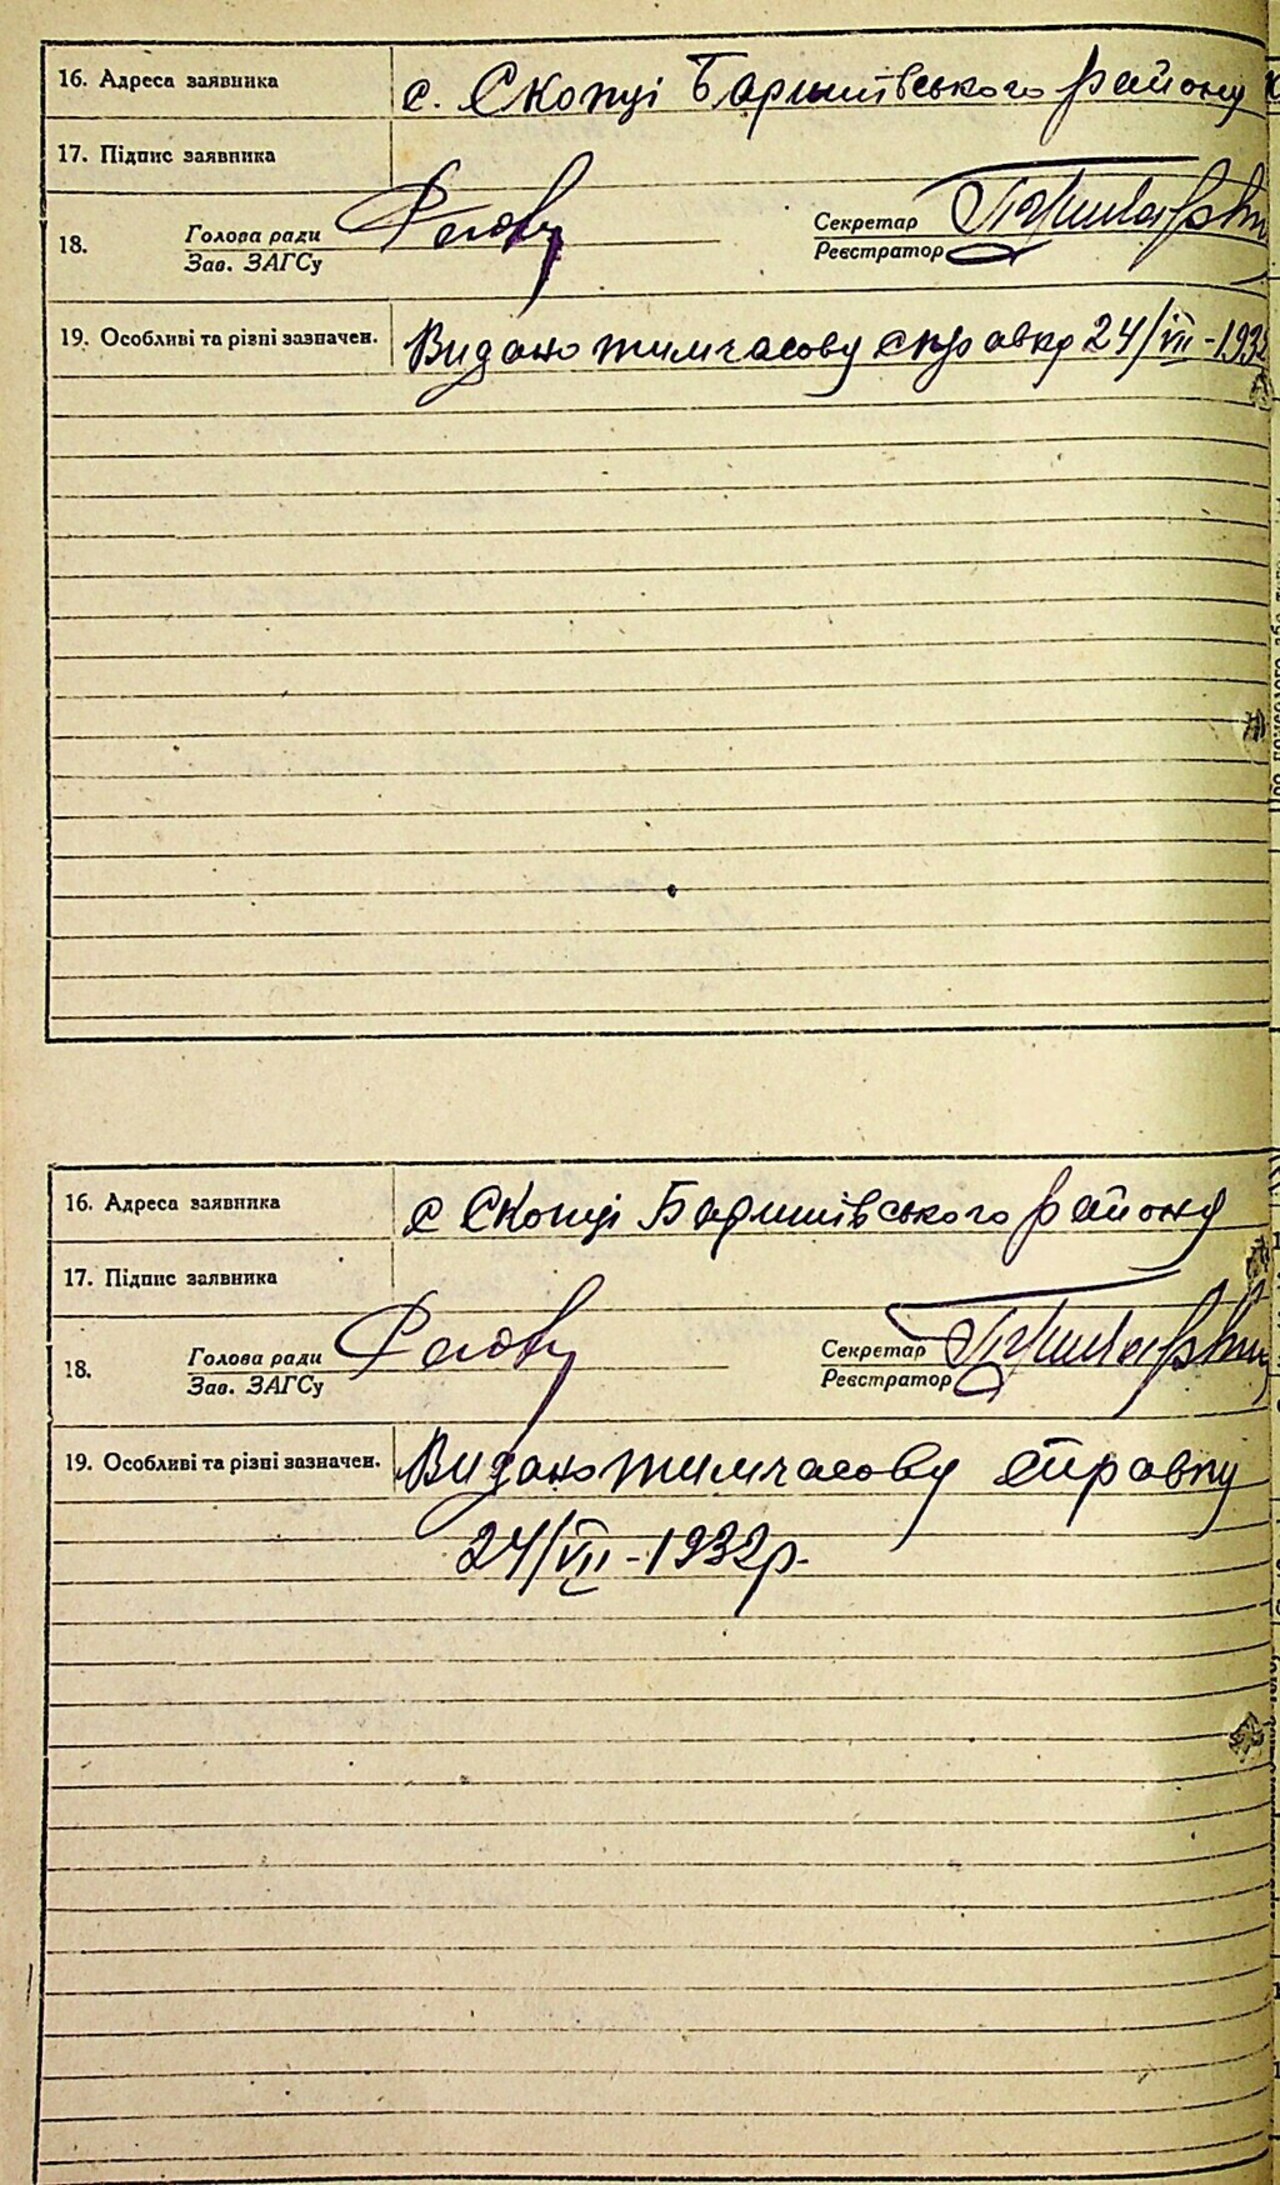 16. Адреса заявника с. Скопці Баришівського району
17. Підпис заявника
18. Голова ради Секретар
Зав. ЗАГСу Реєстратор
19. Особливі та різні зазначен. Видано тимчасову справку 24/VII-1932
16. Адреса заявника с Скопці Баришівського району
17. Підпис заявника
18. Голова ради Секретар
Зав. ЗАГСу Реєстратор
19. Особливі та різні зазначен. Видано тимчасову справку
24/VII-1932р.